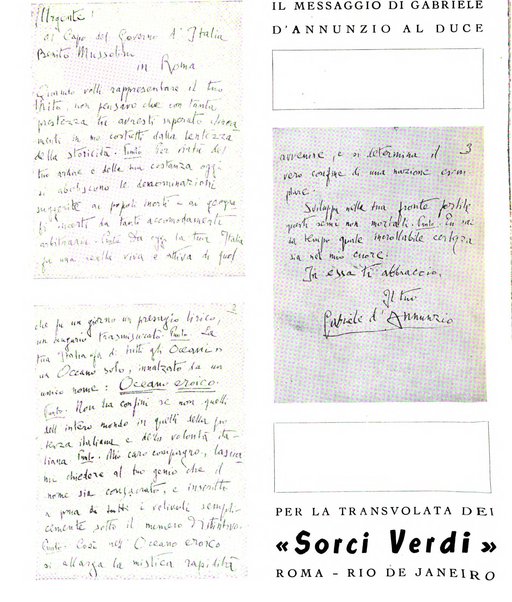 IL MESSAGGIO DI GABRIELE
D'ANNUNZIO AL DUCE
Urgente:
al Capo del Governo d'Italia
Benito Mussolini
in Roma
Quando volli rappresentare il tuo
non pensavo che con tanta
prestezza tu avresti superato
me costretti dalla lentezza
della storicità. Punto. Per virtù del
tuo ardire e della tua costanza oggi
si aboliscono le denominazioni
suggerite ai popoli inerti e ai geogra
fi incerti da tanto accomodamenti
arbitrario. Punto. Da oggi la tua Italia
fa una realtà viva e attiva di quel
2
che fu un giorno un presagio lirico,
un augurio trasmesso. Punto. La
tua Italia fa di tutti gli Oceani
un Oceano solo, innalzato da un
unico nome: Oceano eroico.
Punto. Non ha confini se non quelli
dell'intero mondo in quelli della po
tenza italiana e della volontà ita-
liana. Punto. Mio caro compagno, lascia
me chiedere al tuo genio che il
nome sia consacrato, e inscritto
a prua di tutti i velivoli sempli-
cemente sotto il numero distintivo.
Punto. Così nell'Oceano eroico
si allarga la mistica rapidità
3
avvenire, e si determina il
vero confine di una nazione esem
plare.
Sviluppa nella tua fronte fertile
questi semi non mortali. Punto. Tu sai
da tempo quale incrollabile certezza
sia nel mio cuore.
In essa ti abbraccio.
Il tuo
Gabriele d'Annunzio
PER LA TRANSVOLATA DEI
«Sorci Verdi»
ROMA - RIO DE JANEIRO